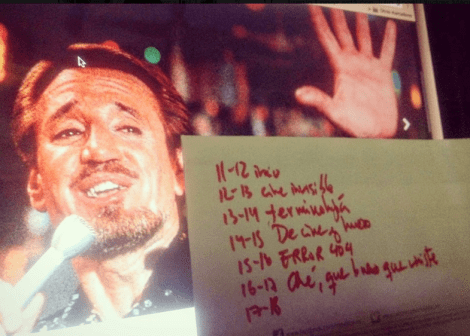 11-12 inicio
12-13 cine invisible
13-14 terminología
14-15 De cine y
15-16 ERROR 404
16-17 Ché, que bueno que viniste
17-18